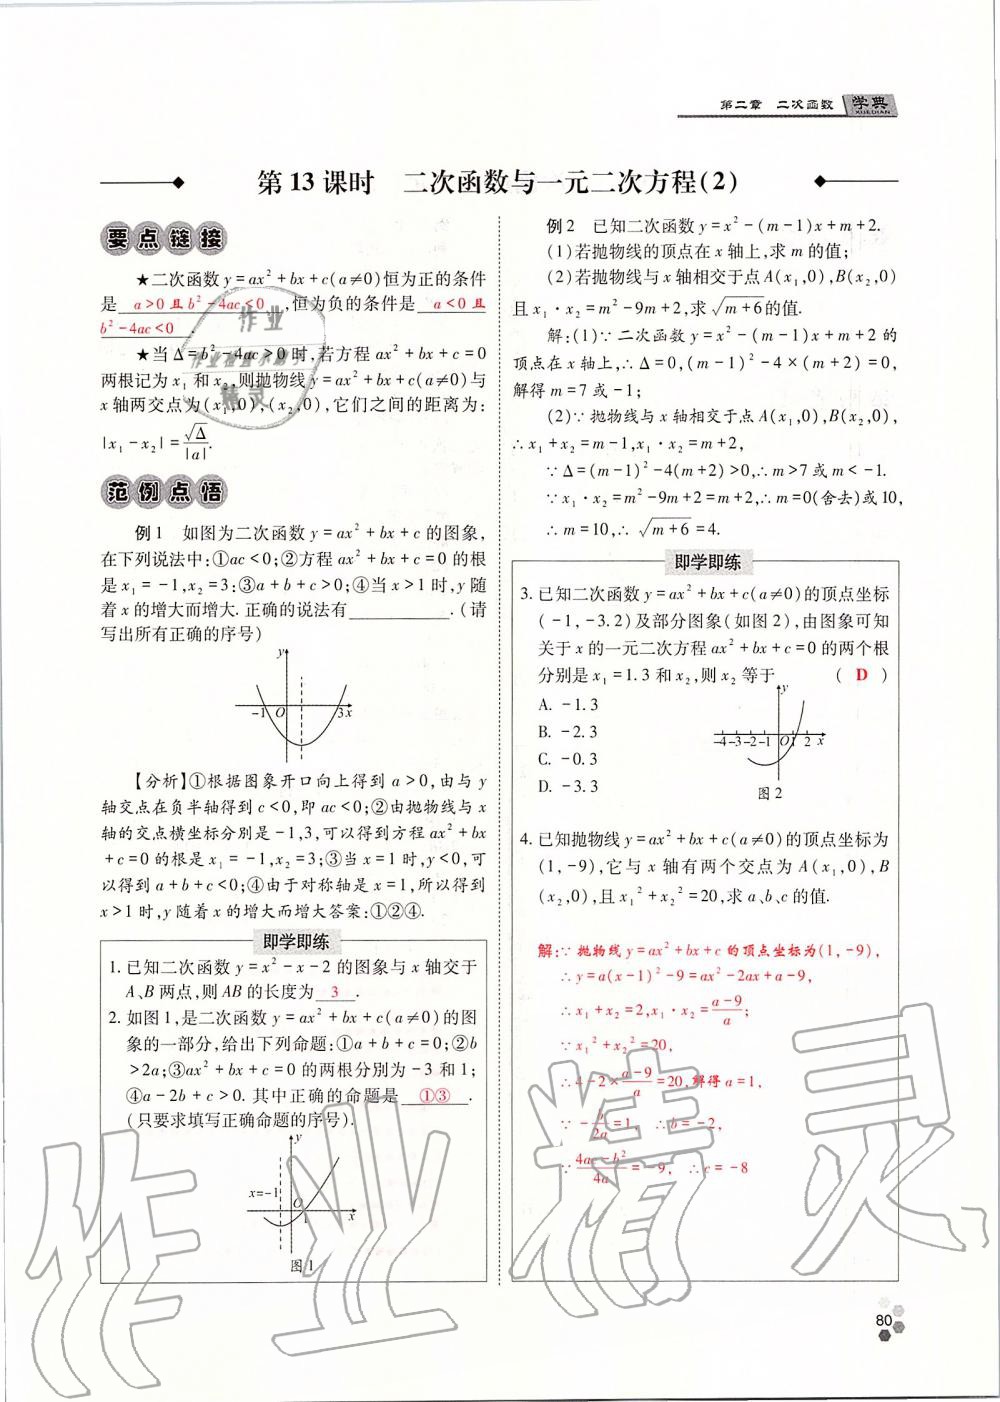 第二章 二次函数 学典
XUEDIAN
第13课时 二次函数与一元二次方程(2)
要点链接
★二次函数y=ax²+bx+c(a≠0)恒为正的条件
是 a>0且b²-4ac<0 ,恒为负的条件是 a<0且
b²-4ac<0 .
★当Δ=b²-4ac>0时,若方程ax²+bx+c=0
两根记为x₁和x₂,则抛物线y=ax²+bx+c(a≠0)与
x轴两交点为(x₁,0),(x₂,0),它们之间的距离为:
|x₁-x₂|=√Δ/|a|.
范例点悟
例1 如图为二次函数y=ax²+bx+c的图象,
在下列说法中:①ac<0;②方程ax²+bx+c=0的根
是x₁=-1,x₂=3:③a+b+c>0;④当x>1时,y随
着x的增大而增大.正确的说法有________.(请
写出所有正确的序号)
y
-1 O 3 x
【分析】①根据图象开口向上得到a>0,由与y
轴交点在负半轴得到c<0,即ac<0;②由抛物线与x
轴的交点横坐标分别是-1,3,可以得到方程ax²+bx
+c=0的根是x₁=-1,x₂=3;③当x=1时,y<0,可
以得到a+b+c<0;④由于对称轴是x=1,所以得到
x>1时,y随着x的增大而增大答案:①②④.
即学即练
1. 已知二次函数y=x²-x-2的图象与x轴交于
A、B两点,则AB的长度为 3 .
2. 如图1,是二次函数y=ax²+bx+c(a≠0)的图
象的一部分,给出下列命题:①a+b+c=0;②b
>2a;③ax²+bx+c=0的两根分别为-3和1;
④a-2b+c>0.其中正确的命题是 ①③ .
(只要求填写正确命题的序号).
y
x=-1
O
1 x
图1
例2 已知二次函数y=x²-(m-1)x+m+2.
(1)若抛物线的顶点在x轴上,求m的值;
(2)若抛物线与x轴相交于点A(x₁,0),B(x₂,0)
且x₁·x₂=m²-9m+2,求√m+6的值.
解:(1)∵二次函数y=x²-(m-1)x+m+2的
顶点在x轴上,∴Δ=0,(m-1)²-4×(m+2)=0,
解得m=7或-1;
(2)∵抛物线与x轴相交于点A(x₁,0),B(x₂,0),
∴x₁+x₂=m-1,x₁·x₂=m+2,
∵Δ=(m-1)²-4(m+2)>0,∴m>7或m<-1.
∵x₁·x₂=m²-9m+2=m+2,∴m=0(舍去)或10,
∴m=10,∴√m+6=4.
即学即练
3. 已知二次函数y=ax²+bx+c(a≠0)的顶点坐标
(-1,-3.2)及部分图象(如图2),由图象可知
关于x的一元二次方程ax²+bx+c=0的两个根
分别是x₁=1.3和x₂,则x₂等于 ( D )
A. -1.3
B. -2.3
C. -0.3
D. -3.3
y
-4-3-2-1 O 1 2 x
图2
4. 已知抛物线y=ax²+bx+c(a≠0)的顶点坐标为
(1,-9),它与x轴有两个交点为A(x₁,0),B
(x₂,0),且x₁²+x₂²=20,求a、b、c的值.
解:∵抛物线y=ax²+bx+c的顶点坐标为(1,-9),
∴y=a(x-1)²-9=ax²-2ax+a-9,
∴x₁+x₂=2,x₁·x₂=a-9/a;
∵x₁²+x₂²=20,
∴4-2×a-9/a=20,解得a=1,
∵-b/2a=1, ∴b=-2,
∵4a -b²/4a=-9, ∴c=-8
80
作业
精灵
作业精灵